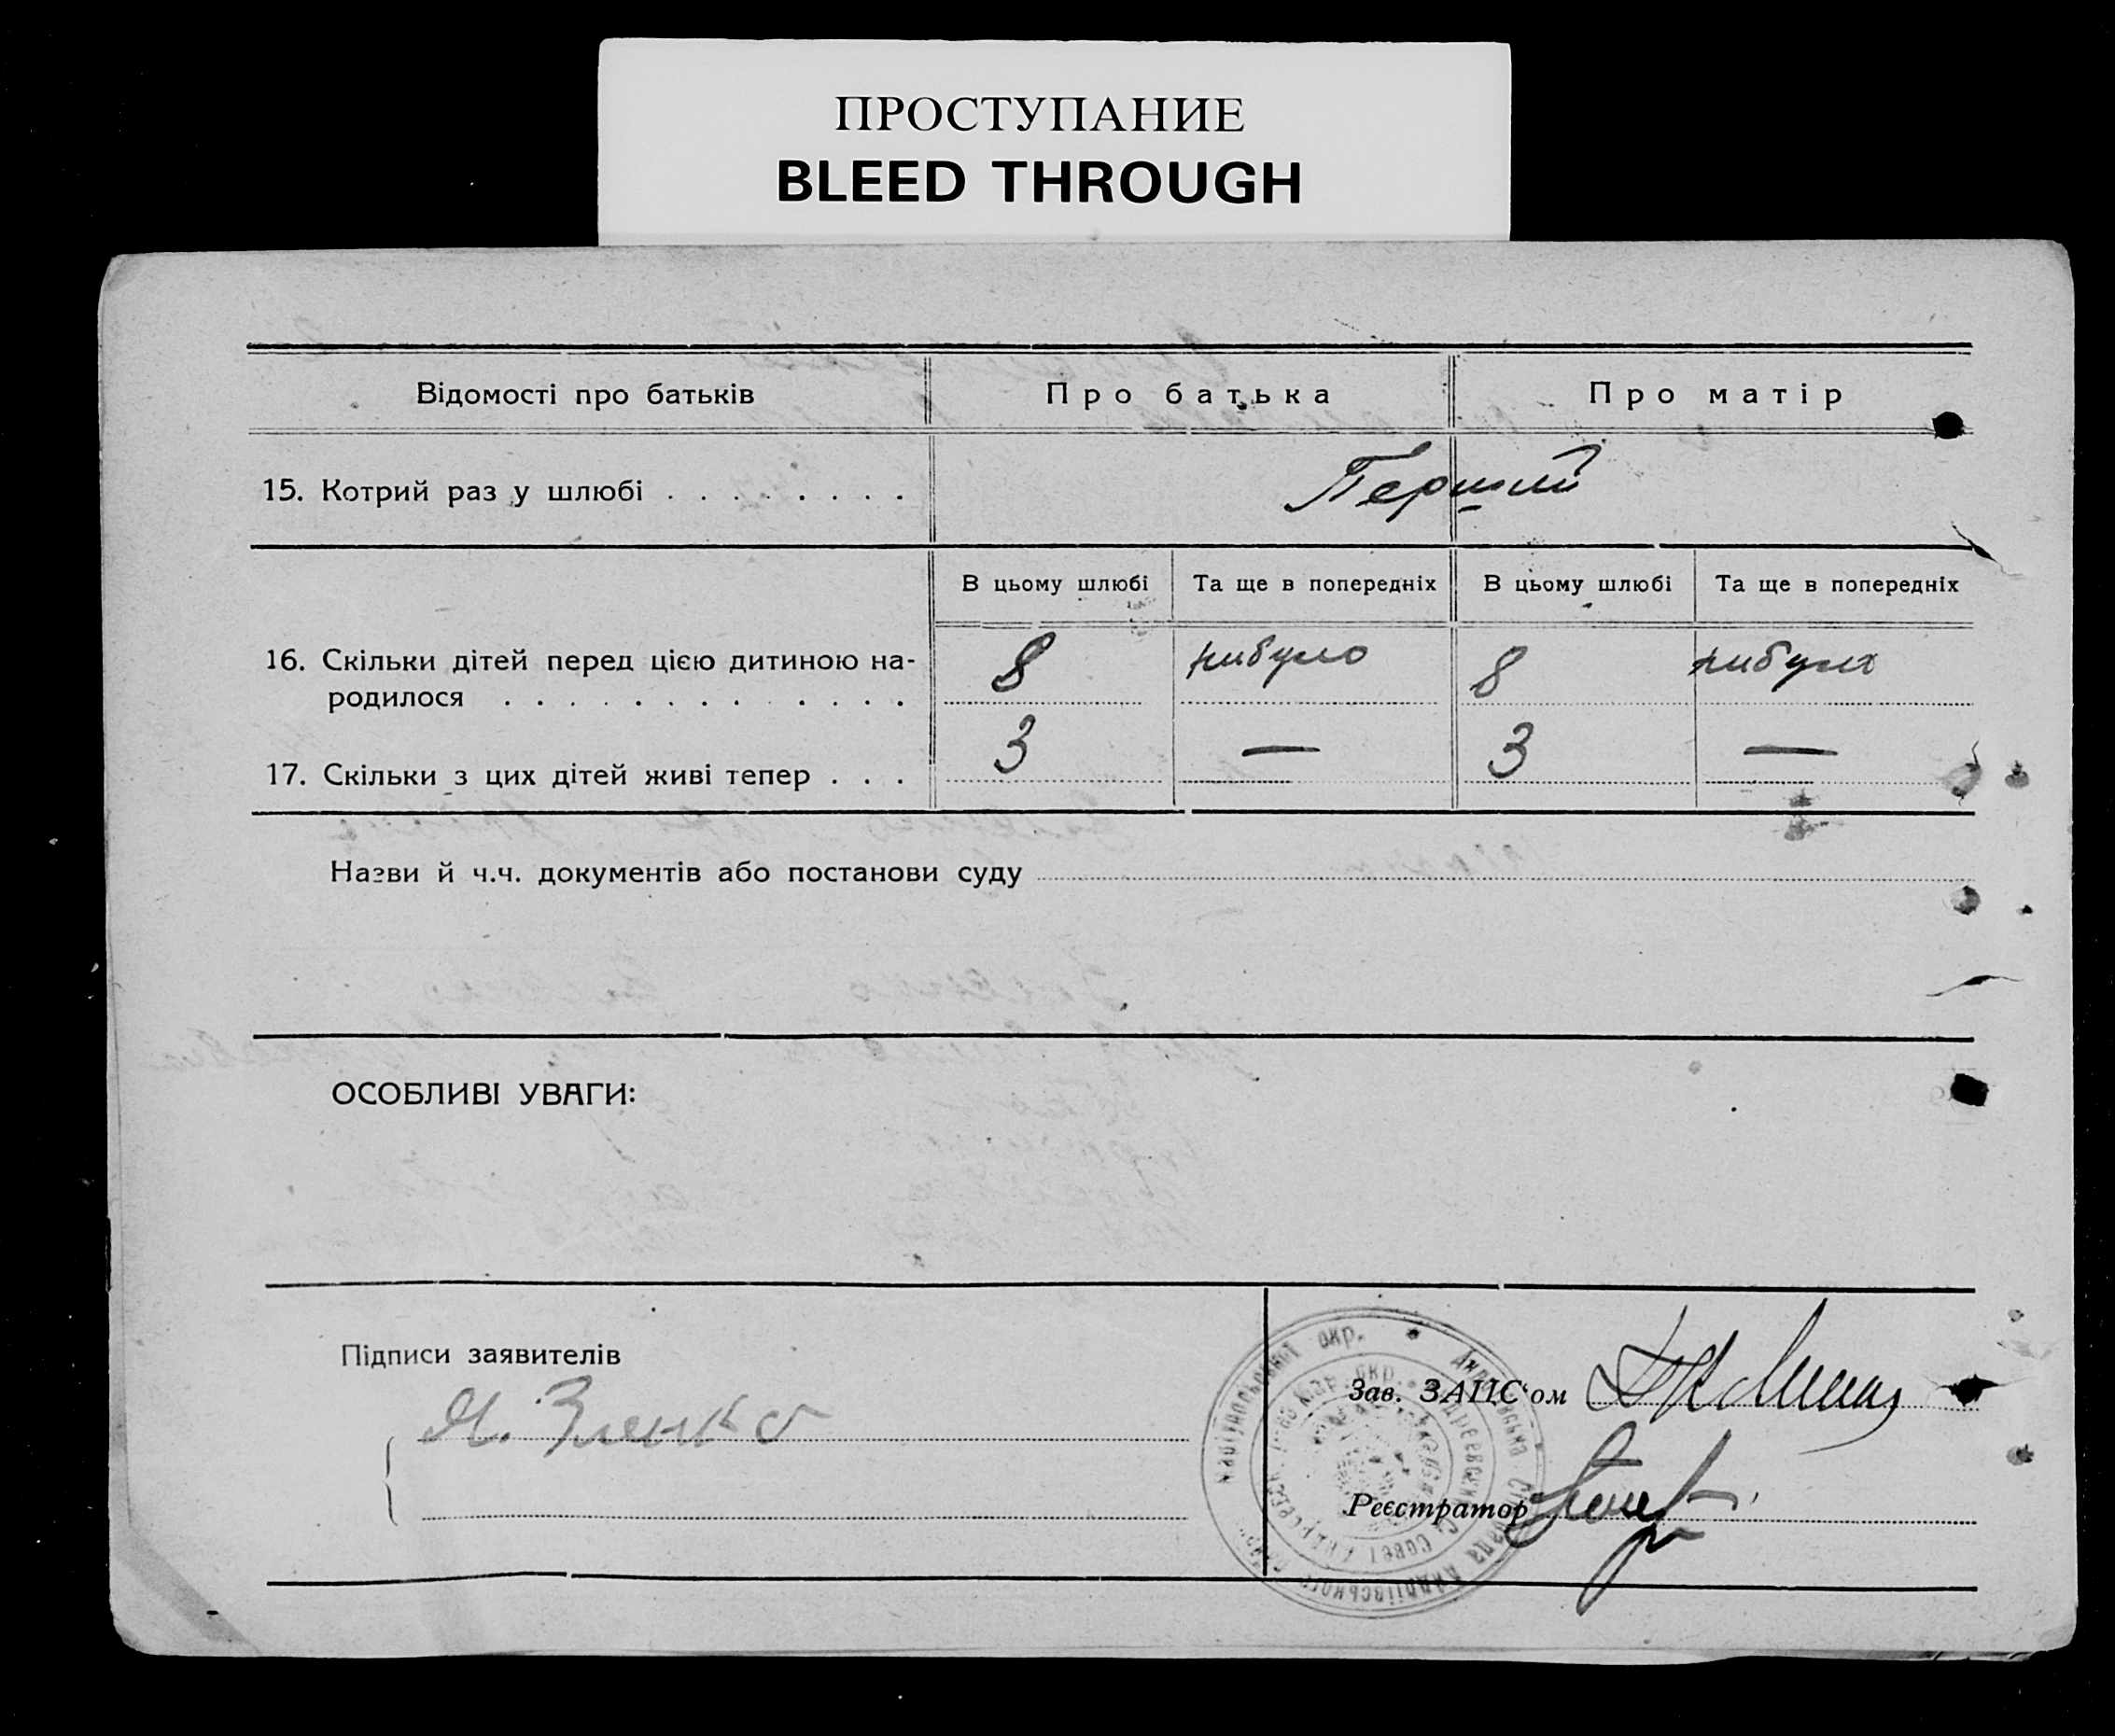 ПРОСТУПАНИЕ
BLEED THROUGH
Відомості про батьків Про батька Про матір
15. Котрий раз у шлюбі . . . . . . . . Перший
В цьому шлюбі Та ще в попередніх В цьому шлюбі Та ще в попередніх
16. Скільки дітей перед цією дитиною на-
родилося . . . . . . . . . . . . . 8 нибуло 8 нибула
17. Скільки з цих дітей живі тепер . . . 3 — 3 —
Назви й ч.ч. документів або постанови суду
ОСОБЛИВІ УВАГИ:
Підписи заявителів
Зав. ЗАПС'ом
Зленко
Реєстратор